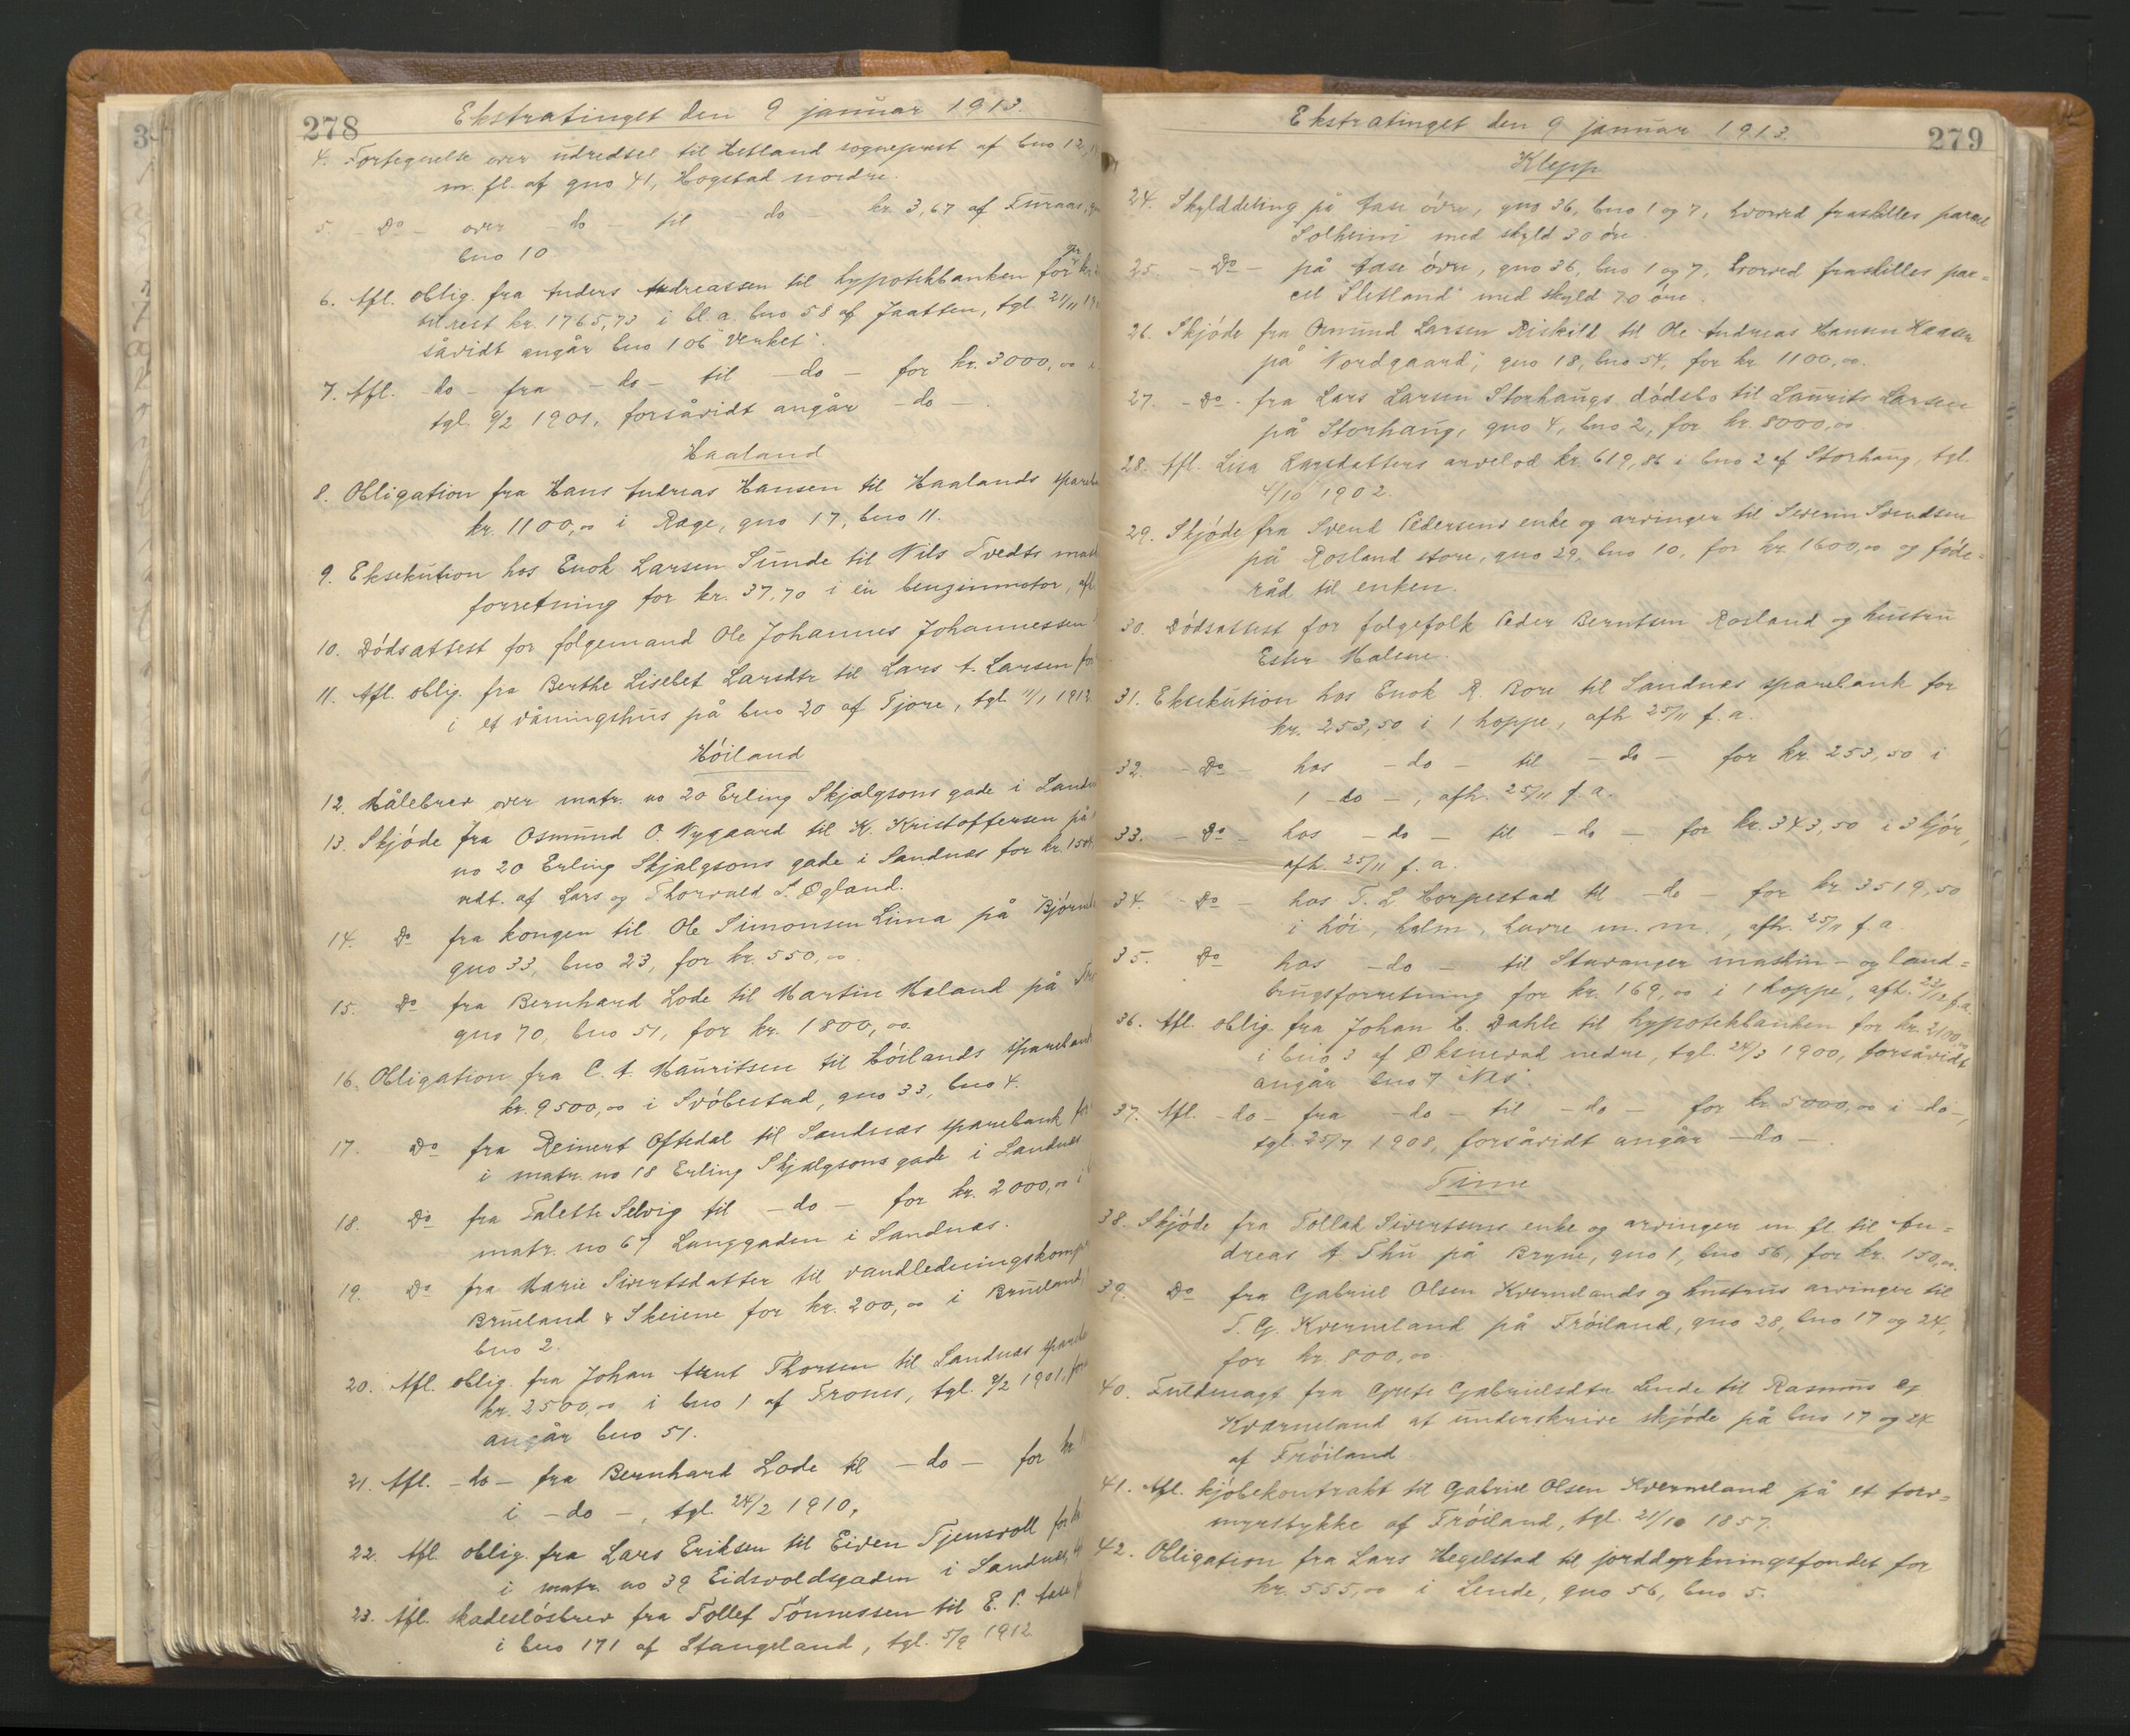 278
Ekstratinget den 9 januar 1913.
4. Fortegnelse over udredsel til Hetland sogneprest af bno 12,
m. fl. af gno 41, Hogstad nordre.
5. - Do - over - do - til - do - kr. 3,67 af Turaas,
bno 10
6. Afl. oblig. fra Anders Andreassen til hypotekbanken for kr.
til rest kr. 1765,73 i bl. a. bno 58 af Jaatten, tgl. 21/11
såvidt angår bno 106 "Verket".
7. Afl. - do - fra - do - til - do - for kr. 3000,00
tgl. 9/2 1901, forsåvidt angår - do - .
Haaland
8. Obligation fra Hans Andreas Hansen til Haalands spareba
kr. 1100,00 i Røge, gno 17, bno 11.
9. Eksekution hos Enok Larsen Sunde til Nils Tvedts mask
forretning for kr. 37,70 i en benzinmotor, afh.
10. Dödsattest for folgemand Ole Johannes Johannessen
11. Afl. oblig. fra Berthe Lisebet Larsdtr til Lars A. Larsen for
i et våningshus på bno 20 af Tjore, tgl. 11/1 1912
Höiland
12. Målebrev over matr. no 20 Erling Skjalgsons gade i Sandn
13. Skjöde fra Osmund O. Nygaard til K. Kristoffersen på
no 20 Erling Skjalgsons gade i Sandnæs for kr. 1500
udt. af Lars og Thorvald S. Øgland.
14. Do fra kongen til Ole Simonsen Lima på "Björn
gno 33, bno 23, for kr. 550,00
15. Do fra Bernhard Lode til Martin Maland på
gno 70, bno 51, for kr. 1800,00.
16. Obligation fra C. A. Mauritsen til Höilands sparebank
kr. 9500,00 i Svöbestad, gno 33, bno 4.
17. Do fra Reinert Oftedal til Sandnæs sparebank for
i matr. no 18 Erling Skjalgsons gade i Sandnæs
18. Do fra Talette Selvig til - do - for kr. 2000,00 i
matr. no 67 Langgaden i Sandnæs.
19. Do fra Marie Sivertsdatter til vandledningskomp
Brueland & Skeiene for kr. 200,00 i Brueland,
bno 2.
20. Afl. oblig. fra Johan Arnt Thorsen til Sandnæs spareba
kr. 2500,00 i bno 1 af Trones, tgl. 9/2 1901, for
angår bno 51.
21. Afl. - do - fra Bernhard Lode til - do - for kr
i - do - , tgl. 24/2 1910,
22. Afl. oblig. fra Lars Eriksen til Eiven Tjensvoll for kr
i matr. no 39 Eidsvoldsgaden i Sandnæs,
23. Afl. skadeslösbrev fra Tollef Tönnessen til E. P. Aase
i bno 171 af Stangeland, tgl. 5/9 1912.
Ekstratinget den 9 januar 1913.
279
Klepp
24. Skylddeling på Aase övre, gno 36, bno 1 og 7, hvorved fraskilles parcel
"Solheim" med skyld 30 öre.
25. - Do - på Aase övre, gno 36, bno 1 og 7, hvorved fraskilles par=
cel "Sletland" med skyld 70 öre.
26. Skjöde fra Osmund Larsen Riskild til Ole Andreas Hansen Haasen
på "Nordgaard", gno 18, bno 54, for kr 1100,00.
27. - Do - fra Lars Larsen Storhaugs dödsbo til Laurits Larsen
på Storhaug, gno 4, bno 2, for kr. 8000,00
28. Afl. Lisa Larsdatters arvelod kr. 619,86 i bno 2 af Storhaug, tgl.
4/10 1902.
29. Skjöde fra Svend Pedersens enke og arvinger til Severin Svendsen
på Rosland store, gno 29, bno 10, for kr. 1600,00 og föde=
råd til enken.
30. Dödsattest for folgefolk Peder Berntsen Rosland og hustru
Ester Malene.
31. Eksekution hos Enok R. Bore til Sandnæs sparebank for
kr. 253,50 i 1 hoppe, afh 25/11 f. a.
32. - Do - hos - do - til - do - for kr. 253,50 i
1 - do - , afh. 25/11 f. a.
33. - Do - hos - do - til - do - for kr. 343,50 i 3 kjör,
afh. 25/11 f. a.
34. - Do - hos T. L. Horpestad til - do - for kr. 3519,50
i höi, halm, havre m. m., afh. 25/11 f. a.
35. Do hos - do - til Stavanger maskin- og land=
brugsforretning for kr. 169,00 i 1 hoppe, afh. 23/12 f. a.
36. Afl. oblig. fra Johan C. Dahle til hypotekbanken for kr. 2100,00
i bno 3 af Øksnevad nedre, tgl. 24/3 1900, forsåvidt
angår bno 7 "Nes".
37. Afl. - do - fra - do - til - do - for kr 5000,00 i - do -,
tgl. 25/7 1908, forsåvidt angår - do - .
Time
38. Skjöde fra Tollak Sivertsens enke og arvinger m. fl. til An=
dreas A Thu på Bryne, gno 1, bno 56, for kr. 150,00.
39. Do fra Gabriel Olsen Kvernelands og hustrus arvinger til
T. G. Kverneland på Fröiland, gno 28, bno 17 og 24,
for kr. 800,00
40. Fuldmagt fra Grete Gabrielsdtr Lende til Rasmus G.
Kværneland at underskrive skjöde på bno 17 og 24
af Fröiland
41. Afl. kjöbekontrakt til Gabriel Olsen Kverneland på et torv=
myrstykke af Fröiland, tgl. 21/10 1857.
42. Obligation fra Lars Hegelstad til jorddyrkningsfondet for
kr. 555,00 i Lende, gno 56, bno 5.